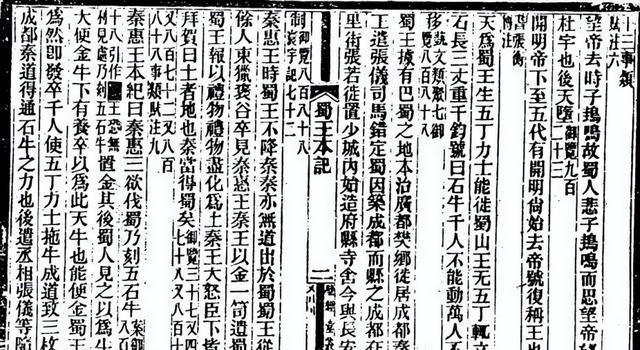 十三事類
賦注六
望帝去時子搗鳴故蜀人悲子搗鳴而思望帝
杜宇也後天墮御覽九百
二十三
開明帝下至五代有開明尚始去帝號復稱王也
書張衡
傳注
天爲蜀王生五丁力士能徙蜀山王无五丁輒
石長三丈重千鈞號曰石牛千人不能動萬人不
移藝文類聚七御
覽八百八十八
蜀王據有巴蜀之地本治廣都樊鄉徙居成都秦
王遣張儀司馬錯定蜀因築成都而縣之成都在
里街張若徙置少城內始造府縣寺舍今與長安
制御覽八百八十八
寰宇記七十二
蜀王本記
二
秦惠王時蜀王不降秦秦亦無道出於蜀蜀王從
餘人東獵褒谷卒見秦惠王秦王以金一笥遺蜀
蜀王報以禮物禮物盡化爲土秦王大怒臣下皆
拜賀曰土者地也秦當得蜀矣御覽三十七又四
七十八又八百十
又八百七十二又八百
八十八事類賦注九
秦惠王本紀曰秦惠王欲伐蜀乃刻五石牛
置金其後蜀人見之以爲牛
大便金牛下有養卒以爲此天牛也能便金蜀王
爲然卽發卒千人使五丁力士拖牛成道致三枚
成都秦道得通石牛之力也後遣丞相張儀等隨